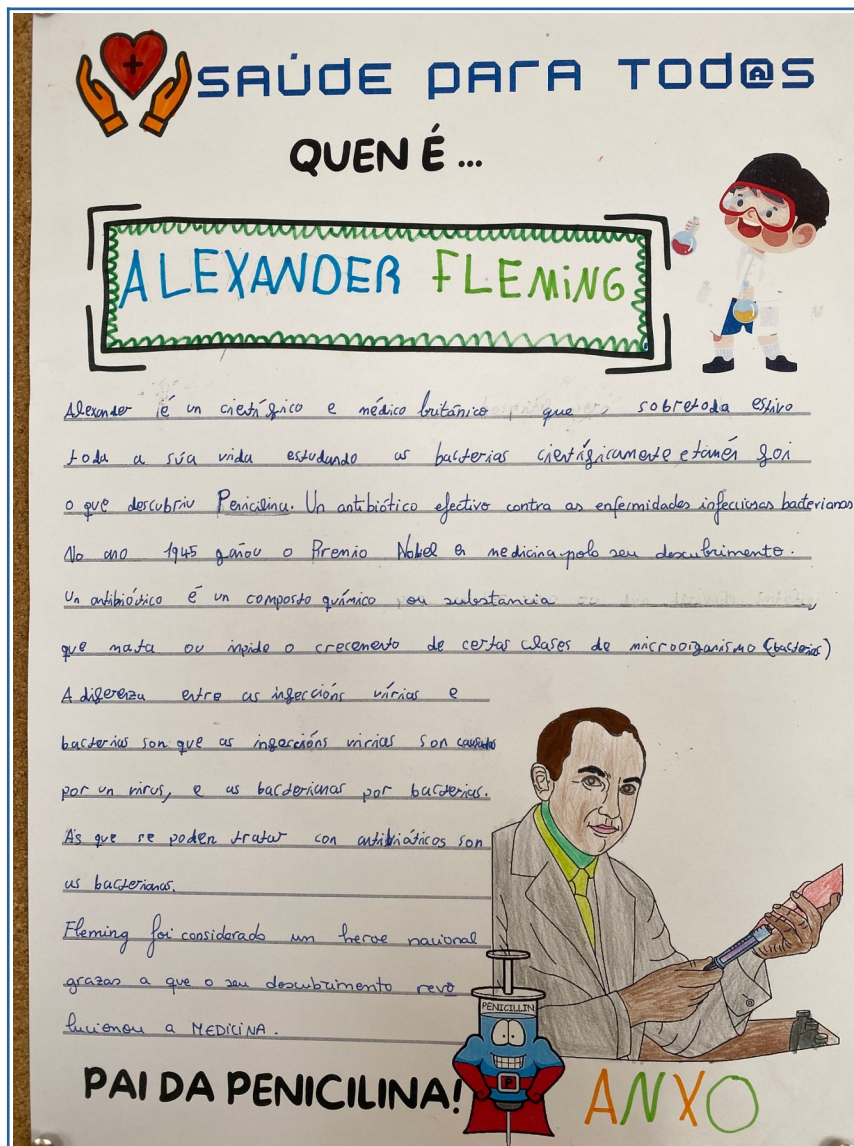 SAÚDE PARA TOD@S
QUEN É ...
ALEXANDER FLEMING
Alexander é un científico e médico británico, que, sobretoda estivo
toda a súa vida estudando as bacterias cientificamente e tamén foi
o que descubriu Penicilina. Un antibiótico efectivo contra as enfermidades infecciosas bacterianas
No ano 1945 gañou o Premio Nobel en medicina polo seu descubrimento.
Un antibiótico é un composto químico ou substancia
que mata ou inpide o crecemento de certas clases de microorganismo (bacterias)
A diferenza entre as infeccións virias e
bacterias son que as infeccións virias son causadas
por un virus, e as bacterianas por bacterias.
As que se poden tratar con antibióticos son
as bacterianas.
Fleming foi considerado un heroe nacional
grazas a que o seu descubrimento revo
lucionou a MEDICINA.
PENICILLIN
P
PAI DA PENICILINA!
ANXO